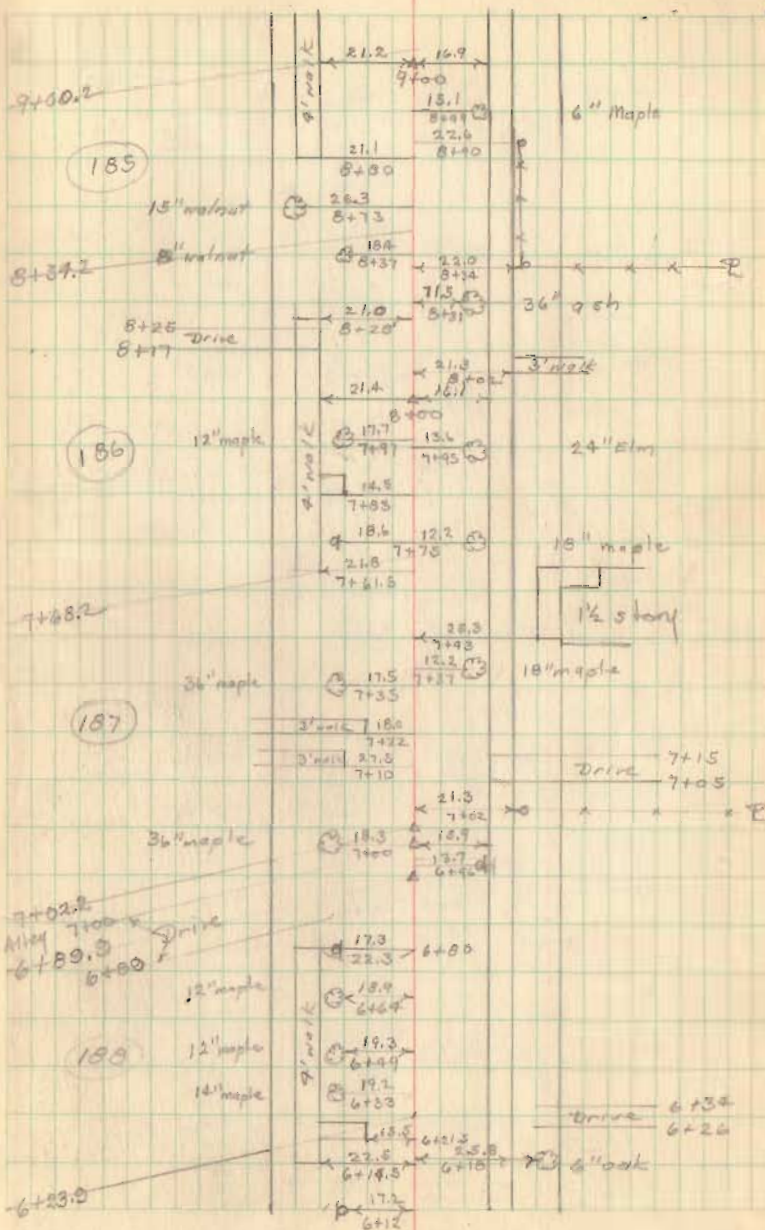 21.2 16.9
9+00
9+00.2
4' walk
15.1
8+99
6" Maple
22.6
8+90
185
21.1
8+80
15" walnut
26.3
8+73
8" walnut
18.4
8+37
22.0
8+34
8+34.2
11.5
8+31
36" ash
8+25
Drive
8+17
21.0
21.3
8+02
3' walk
21.4 16.1
8+00
186
12" maple
17.7
7+97
13.6
7+95
24" Elm
4' walk
14.5
7+85
18.6 12.2
7+75
18" maple
21.8
7+61.5
7+68.2
1½ story
7+43
12.2
7+37
18" maple
36" maple
17.5
7+35
187
3' walk 18.0
7+22
3' walk 27.5
7+10
7+15
Drive
7+05
21.3
7+02
36" maple
18.3
7+00
15.9
13.7
6+96
7+02.2
Alley
7+00
Drive
6+89.9
6+80
17.3
22.3
6+80
12" maple
18.9
6+64
188
4' walk
12" maple
19.3
6+49
14" maple
19.2
6+33
6+34
Drive
6+26
13.5
6+21.5
22.5
6+14.5
25.8
6+15
6" oak
6+23.9
17.2
6+12